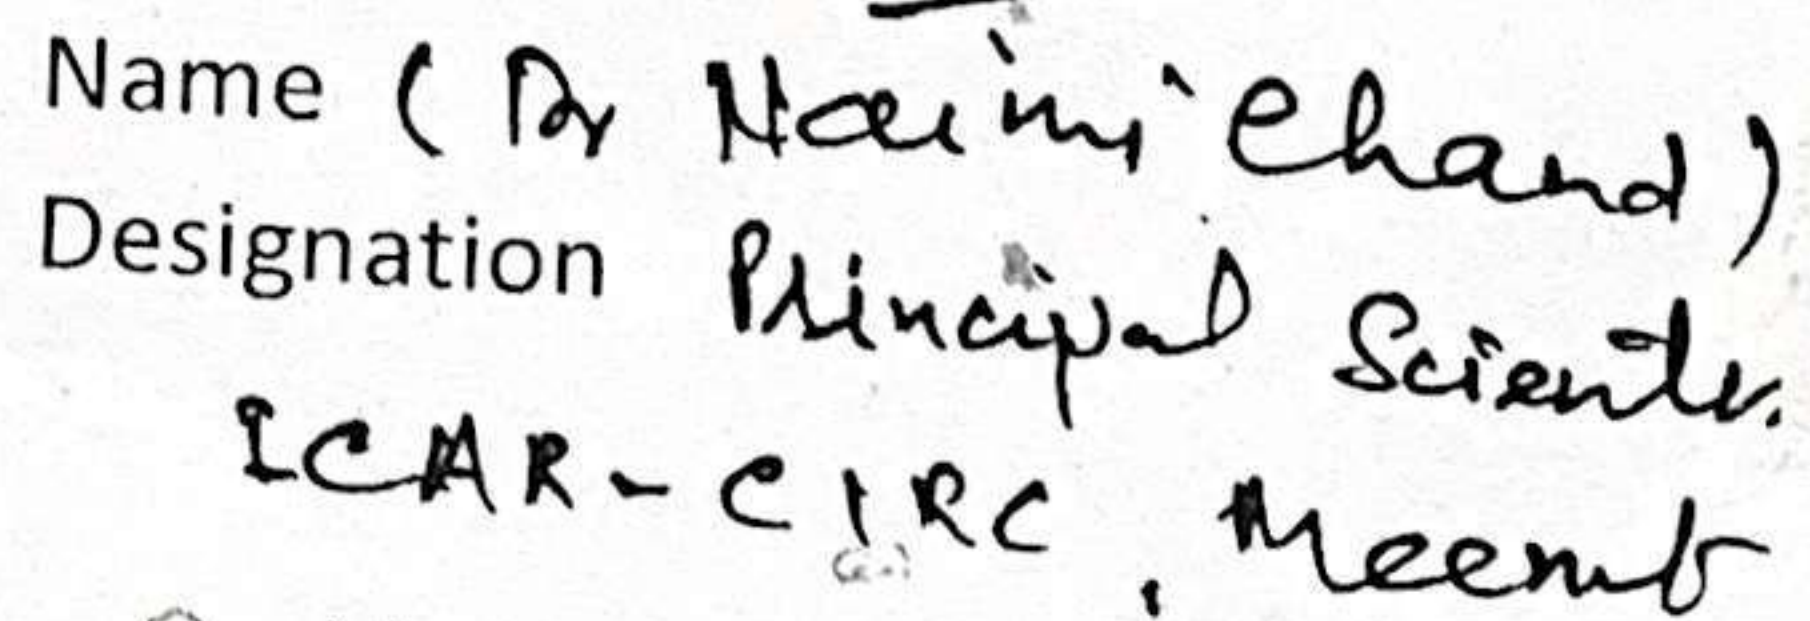 Name ( Dr Naimi Chand )
Designation Principal Scientist.
ICAR-CIRC, Meerut